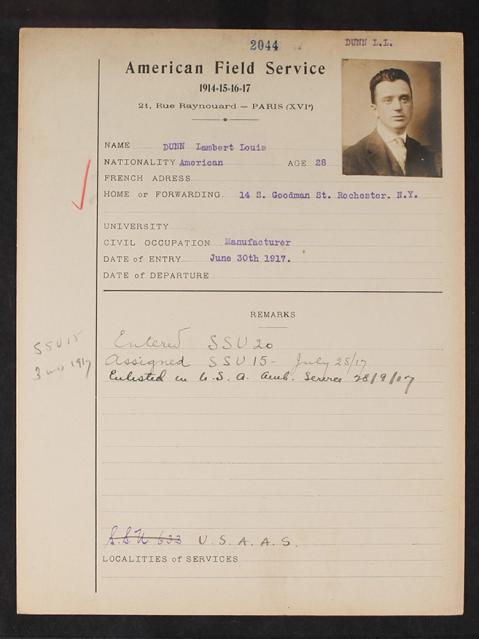 2044
DUNN L.L.
American Field Service
1914-15-16-17
21, Rue Raynouard — PARIS (XVIe)
NAME DUNN Lambert Louis
NATIONALITY American AGE 28
FRENCH ADRESS
HOME or FORWARDING 14 S. Goodman St. Rochester. N.Y.
UNIVERSITY
CIVIL OCCUPATION Manufacturer
DATE of ENTRY June 30th 1917.
DATE of DEPARTURE
REMARKS
Entered SSU 20
SSU 15
Assigned SSU 15 - July 25/17
3 1917
Enlisted in U.S.A. Amb. Service 28/9/17
S.S.U 633 U.S.A.A.S.
LOCALITIES of SERVICES